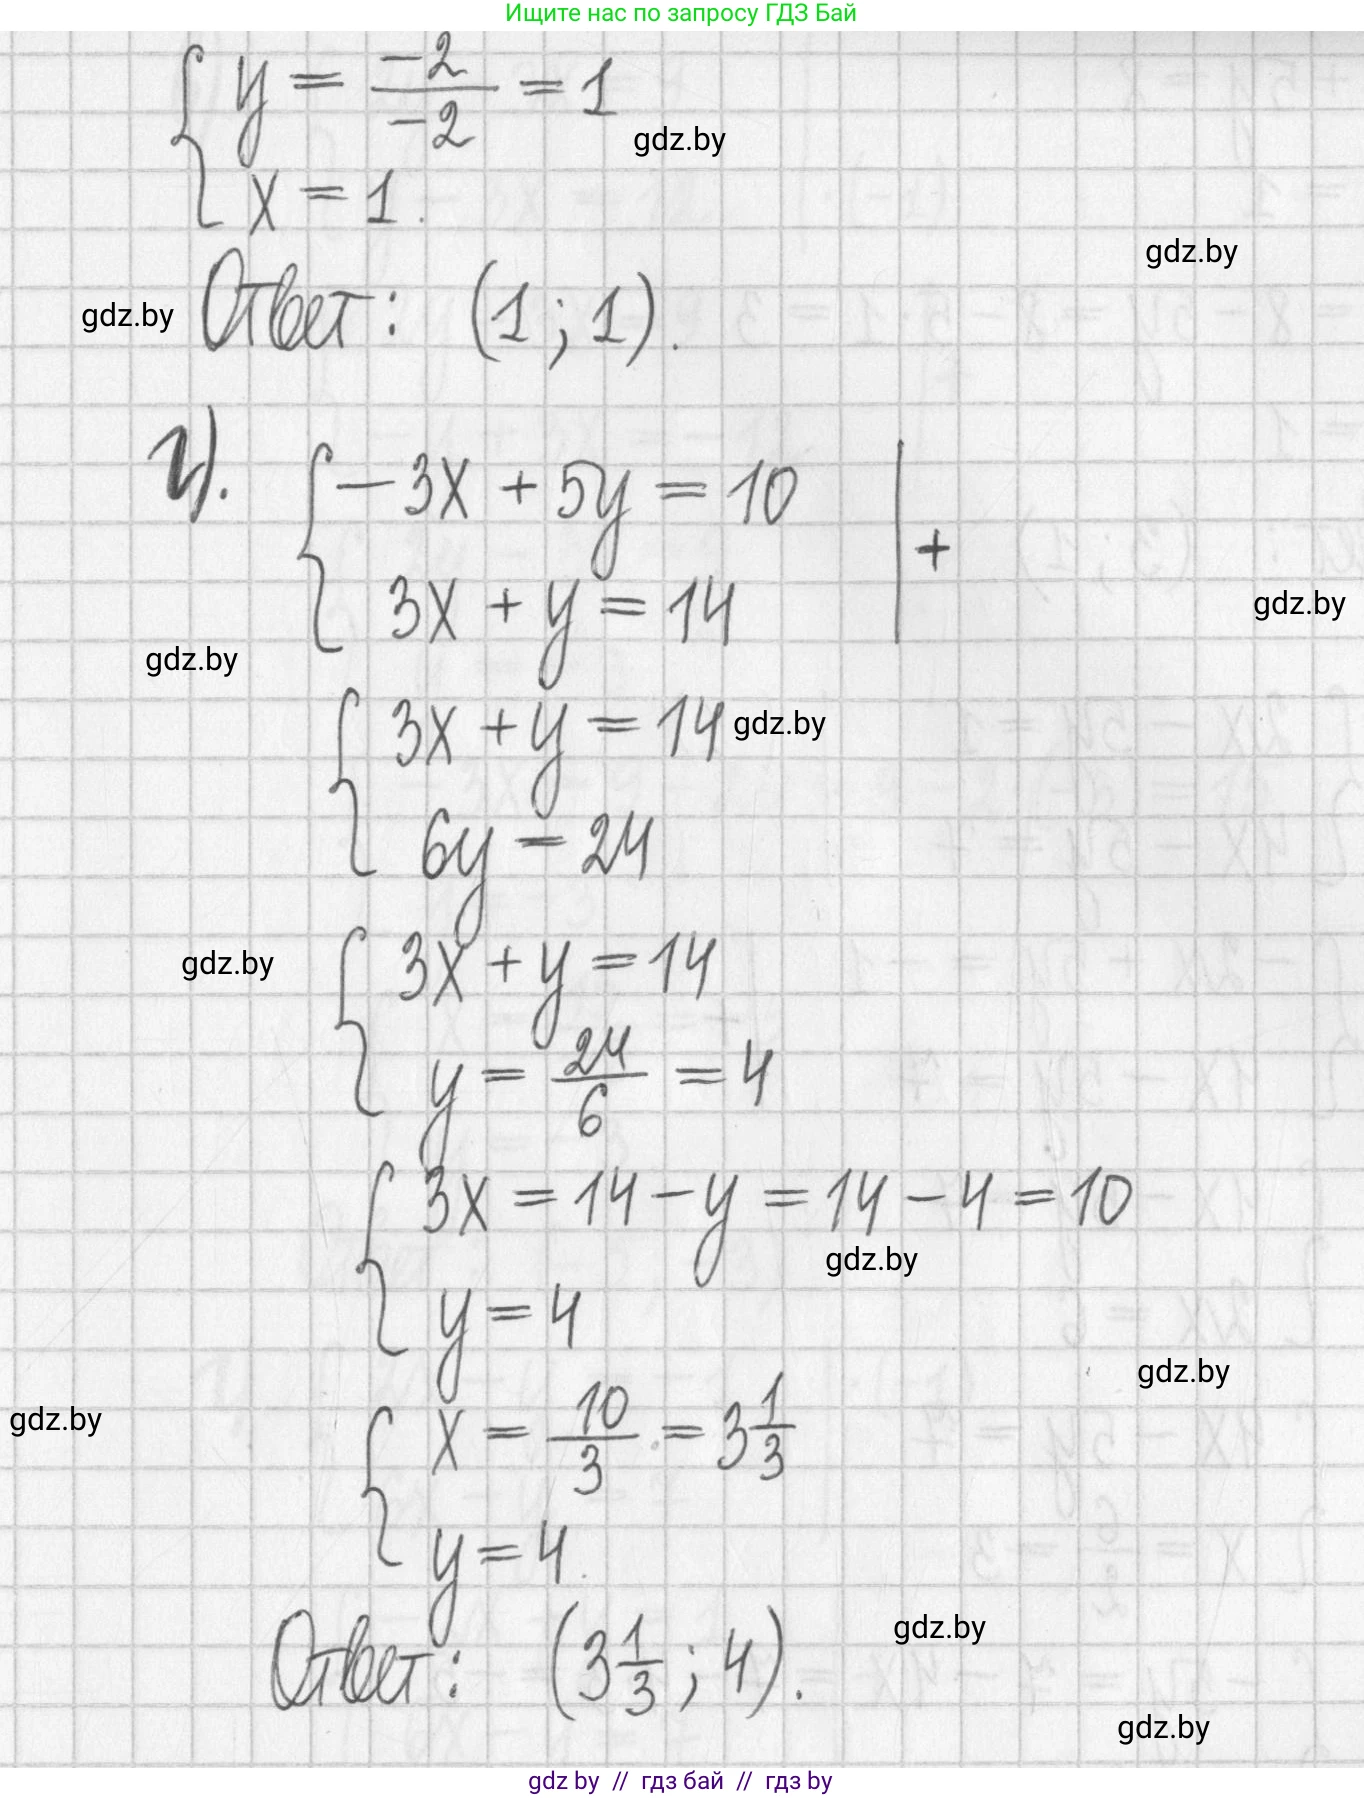 Ищите нас по запросу ГДЗ Бай
{ y = -2/-2 = 1
gdz.by
x = 1.
gdz.by
gdz.by
Ответ: (1; 1).
г).
{ -3x + 5y = 10 | +
3x + y = 14
gdz.by
gdz.by
{ 3x + y = 14
gdz.by
6y = 24
{ 3x + y = 14
gdz.by
y = 24/6 = 4
{ 3x = 14 - y = 14 - 4 = 10
gdz.by
y = 4
gdz.by
gdz.by
{ x = 10/3 = 3 1/3
y = 4.
gdz.by
Ответ: (3 1/3; 4).
gdz.by
gdz by // гдз бай // гдз by